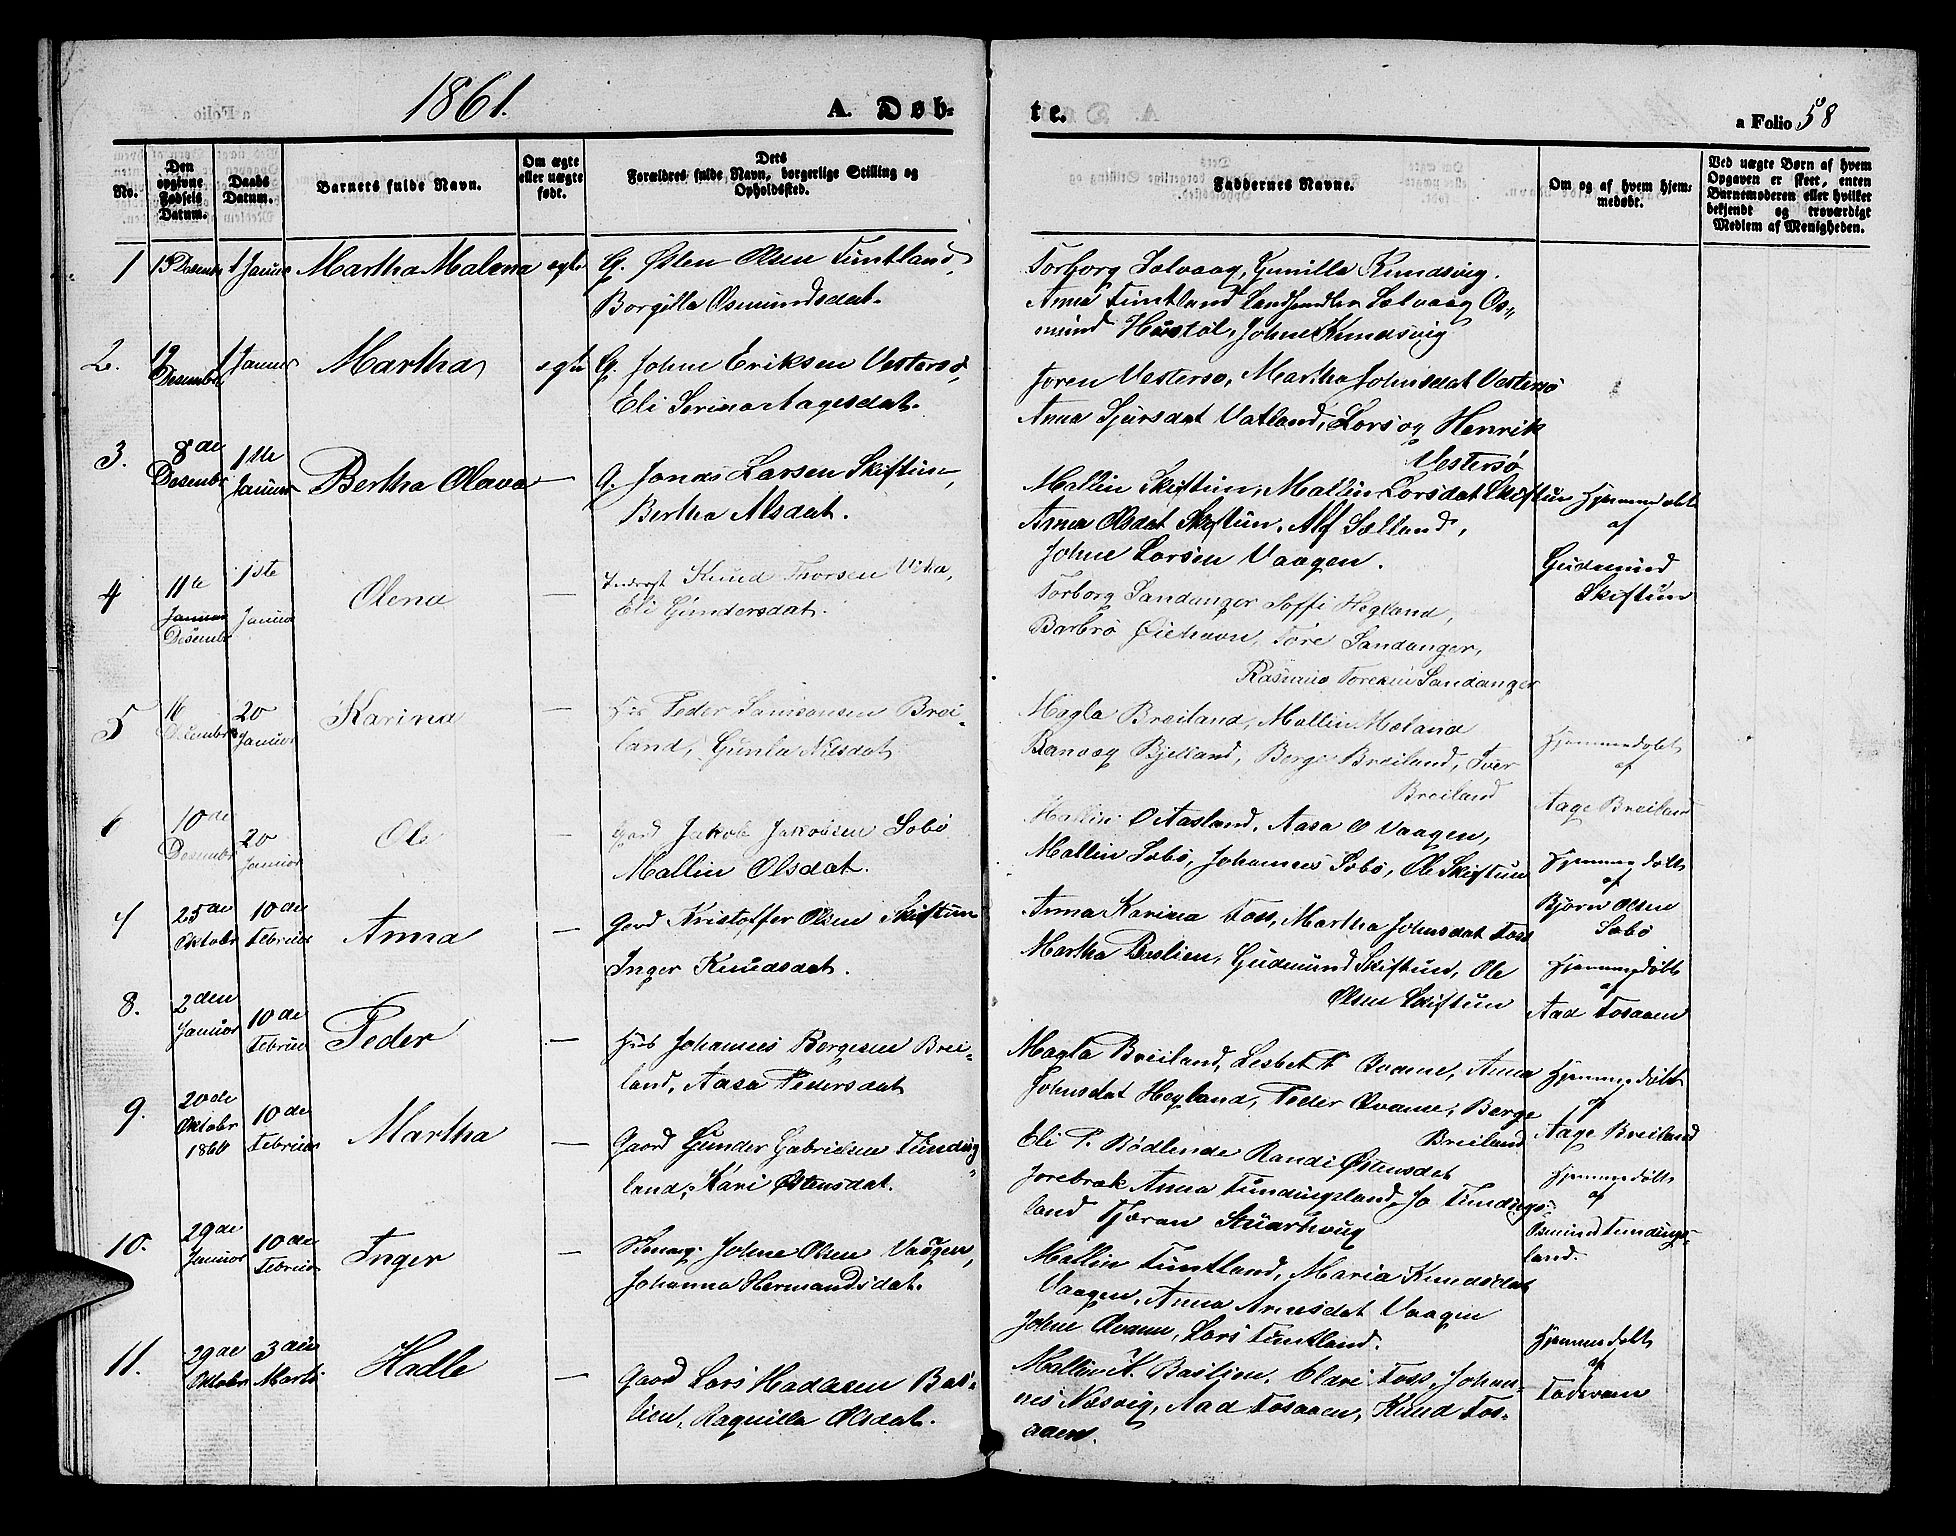 1861.
A. Døb-
te.
a Folio 58
No.
Den opgivne Fødsels Datum.
Daabs Datum.
Barnets fulde Navn.
Om ægte eller uægte født.
Dets Forældres fulde Navn, borgerlige Stilling og Opholdssted.
Faddernes Navne.
Om og af hvem hjemmedøbt.
Ved uægte Børn af hvem Opgaven er skeet, enten Barnemoderen eller hvilket bekjendt og troværdigt Medlem af Menigheden.
1 15 Desembr 1 Januar Martha Malena egte G. Østen Olsen Tuntland,
Borgilla Osmundsdat.
Torborg Selvaag, Gunille Knudsvig.
Anna Tuntland Landhandler Selvaag Os-
mund Hustøl, Johne Knudsvig
2. 19 Desembr 1 Januar Martha egte G. Johne Eriksen Vestersø,
Eli Serina Aagesdat.
Joren Vestersø, Martha Johnsdat Vestersø
Anna Sjursdat Vatland, Lars og Henrik
Vestersø
3. 8de Desembr 1ste Januar Bertha Olava — G. Jonas Larsen Skiftun,
Bertha Alsdat.
Mallin Skiftun, Mallin Larsdat Skiftun
Anna Olsdat Skiftun, Alf Sælland,
Johne Larsen Vaagen.
Hjemmedøbt
af
Gudmund
Skiftun
4 11te Januar Desembr 1ste Januar Olena — Knud Thorsen Vika,
Eli Gundersdat.
Torborg Sandanger Soffi Hegland,
Barbro Øiehavn, Tore Sandanger,
Rasmus Toresen Sandanger
5 16 Desembr 20 Januar Karina — Hus Peder Samsonsen Brei-
land, Gunla Nilsdat
Magla Breiland, Mallin Meland
Ranvæg Bjelland, Berge Breiland, Iver
Breiland
Hjemmedøbt
af
Aage Breiland
6 10de Desembr 20 Januar Ole — Gard Jakob Jakobsen Søbø
Mallin Olsdat.
Mallin O Aasland, Aasa O Vaagen,
Mallin Søbø, Johannes Søbø, Ole Skiftun
Hjemmedøbt
af
Bjørn Olsen
Søbø
7 25de Oktobr 10de Februar Anna — Gard Kristoffer Olsen Skiftun
Inger Knudsdat.
Anna Karina Foss, Martha Johnsdat Foss
Martha Baslien, Gudmund Skiftun, Ole
Olsen Skiftun
Hjemmedøbt
af
Aad Fosaaen
8. 2den Januar 10de Februar Peder — Hus Johannes Bergesen Brei-
land, Aasa Pedersdat
Magla Breiland, Lesbet P Qvame, Anna
Johnsdat Hegland, Peder Qvame, Berge
Breiland
Hjemmedøbt
af
Aage Breiland
9. 20de Oktobr 1860 10de Februar Martha — Gaard Gunder Gabrielsen Funding
land, Kari Østensdat.
Eli P. Bødlende Randi Østensdat
Jorebrek Anna Fundingsland, Jo Fundings-
land Tjeran
Hjemmedøbt
af
Osmund Fundings-
land.
10. 29de Januar 10de Februar Inger — Johne Olsen Vaagen,
Johanna Hermandsdat.
Mallin Tuntland, Maria Knudsdat
Vaagen, Anna Arnesdat Vaagen
Johne Qvame, Lars Tuntland.
11. 29de Oktobr 3die Marts Hadle — Gaard Lars Hadlesen Bas-
lien, Raquilla Olsdat.
Mallin K. Baslien, Foss, Johan-
nes Næsvig, Aad Fosaaen, Knud Fos-
aaen.
Hjemmedøbt
af
Faderen